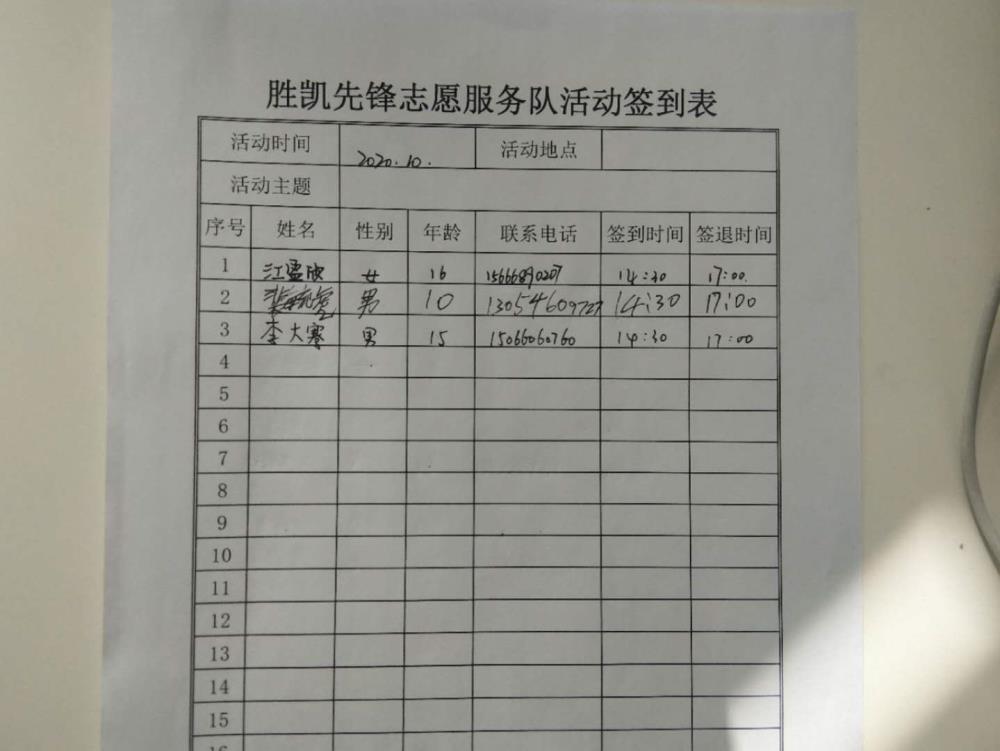 胜凯先锋志愿服务队活动签到表
活动时间 2020.10. 活动地点
活动主题
序号 姓名 性别 年龄 联系电话 签到时间 签退时间
1 江孟欣 女 16 15666890207 14:30 17:00.
2 男 10 13054609727 14:30 17:00
3 李大寒 男 15 15066060760 14:30 17:00
4
5
6
7
8
9
10
11
12
13
14
15
16